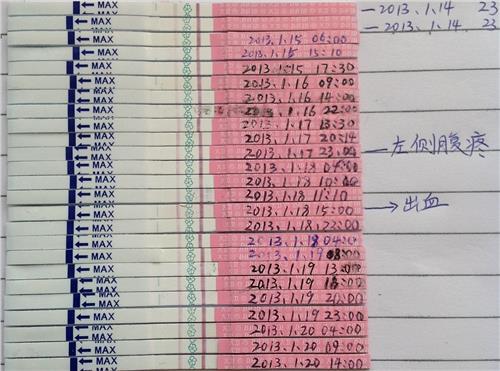 MAX — 2013.1.14 23
MAX — 2013.1.14 23
MAX 2013.1.15 06:00
MAX 2013.1.15 15:10
MAX 2013.1.15 17:30
MAX 2013.1.16 09:00
MAX 2013.1.16 14:00
MAX 2013.1.16 22:00
MAX 2013.1.17 13:30
MAX 2013.1.17 20:14
MAX 2013.1.17 23:00 — 左侧腹疼
MAX 2013.1.18
MAX 2013.1.18 10:00
MAX 2013.1.18 11:10
MAX 2013.1.18 15:00 → 出血
MAX 2013.1.18 23:00
MAX 2013.1.18 04:00
MAX 2013.1.19 08:00
MAX 2013.1.19
MAX 2013.1.19
MAX 2013.1.19 20:00
MAX 2013.1.19 23:00
MAX 2013.1.20 04:00
MAX 2013.1.20 09:00
MAX 2013.1.20 14:00